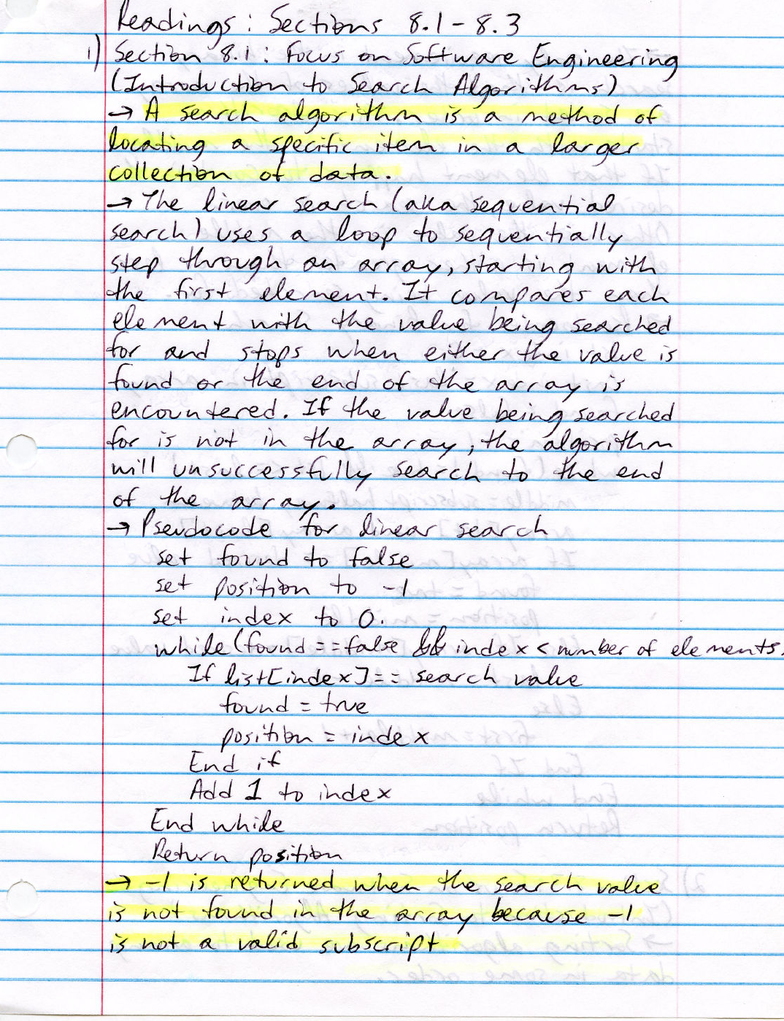 Readings: Sections 8.1-8.3
1) Section 8.1: Focus on Software Engineering
(Introduction to Search Algorithms)
→ A search algorithm is a method of
locating a specific item in a larger
collection of data.
→ The linear search (aka sequential
search) uses a loop to sequentially
step through an array, starting with
the first element. It compares each
element with the value being searched
for and stops when either the value is
found or the end of the array is
encountered. If the value being searched
for is not in the array, the algorithm
will unsuccessfully search to the end
of the array.
→ Pseudocode for linear search
set found to false
set position to -1
set index to 0.
while (found == false && index < number of elements.
If list[index] == search value
found = true
position = index
End if
Add 1 to index
End while
Return position
→ -1 is returned when the search value
is not found in the array because -1
is not a valid subscript